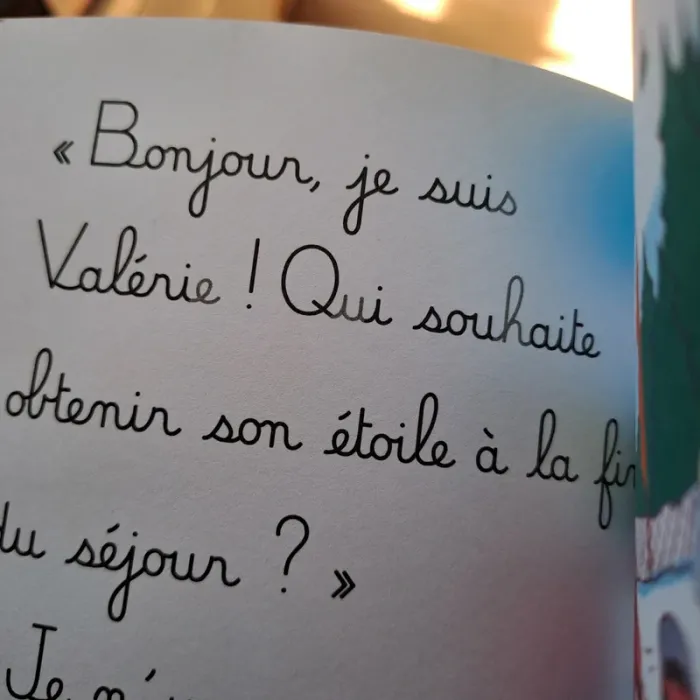 « Bonjour, je suis
Valérie ! Qui souhaite
obtenir son étoile à la fin
du séjour ? »
Je n'